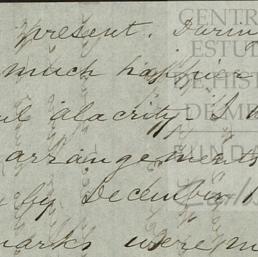 present. Durin
much happier
ul alacrity. I
arrangements
by December 1
marks were m
CENTR
ESTUD
DE HIST
DE M
FUNDA